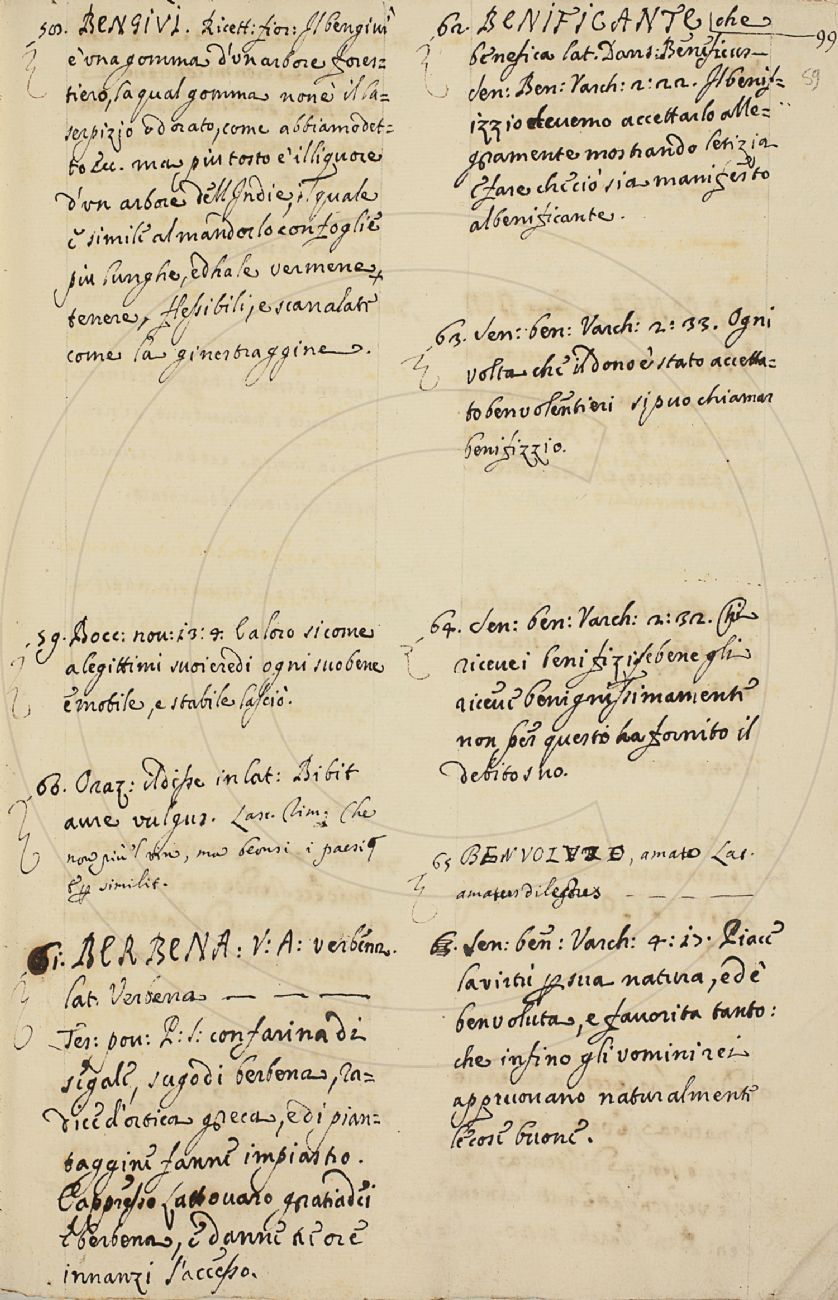 58. BENGIVI. Ricett: fior: Il bengivi
è vna gomma d'vn arbore fores=
tiero, la qual gomma non è il la=
serpizio odorato, come abbiamo det=
to Ec. ma piu tosto è il liquore
d'vn arbore dell'Indie, il quale
è simile al mandorlo, con foglie
piu lunghe, ed ha le vermene
tenere, flessibili, e scanalate
come la ginestraggine.
59. Bocc: nou: 13: 4. la loro sicome
a legittimi suoi eredi ogni suo bene
e mobile, e stabile lasciò.
60. Oraz: il disse in lat: Bibit
aure vulgus. Lasc. Rim: Che
non più 'l vin, ma beonsi i paesi
E simili.
61. BERBENA: V: A: verbena.
lat. Verbena — — —
Tes: pou: P: S: con farina di
segale, sugo di berbena, ra=
dice d'ortica greca, e di pian=
taggine fanne impiastro.
E appresso Lattouaro gratia dei
E berbena, e danne tre ore
innanzi l'accesso.
99
59
62. BENIFICANTE che
benefica lat. Dans: Beneficus —
Sen: Ben: Varch: 2: 22. Il benif=
izzio deuemo accettarlo alle=
gramente mostrando letizia
e fare che ciò sia manifesto
al benificante.
63. Sen: ben: Varch: 2: 33. Ogni
volta che il dono è stato accetta=
to ben volentieri si puo chiamar
benifizzio.
64. Sen: ben: Varch: 2: 32. Chi
riceue i benifizi, se bene gli
riceue benignissimamente
non per questo ha fornito il
debito suo.
65 BENVOLUTO, amato Lat.
amatus dilectus — — — —
Sen: ben: Varch: 4: 17. Piace
la virtù per sua natura, ed è
benvoluta, e fauorita tanto:
che infino gli vomini rei
appruouano naturalmente
le cose buone.